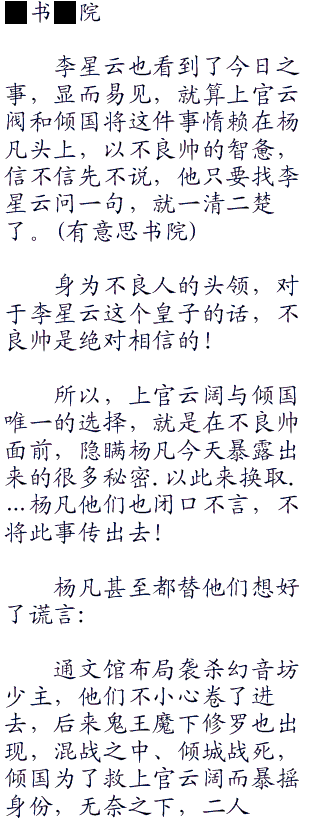 书院
李星云也看到了今日之
事，显而易见，就算上官云
阀和倾国将这件事惰赖在杨
凡头上，以不良帅的智惫，
信不信先不说，他只要找李
星云问一句，就一清二楚
了。(有意思书院)
身为不良人的头领，对
于李星云这个皇子的话，不
良帅是绝对相信的!
所以，上官云阔与倾国
唯一的选择，就是在不良帅
面前，隐瞒杨凡今天暴露出
来的很多秘密.以此来换取.
...杨凡他们也闭口不言，不
将此事传出去!
杨凡甚至都替他们想好
了谎言:
通文馆布局袭杀幻音坊
少主，他们不小心卷了进
去，后来鬼王麾下修罗也出
现，混战之中、倾城战死，
倾国为了救上官云阔而暴摇
身份，无奈之下，二人